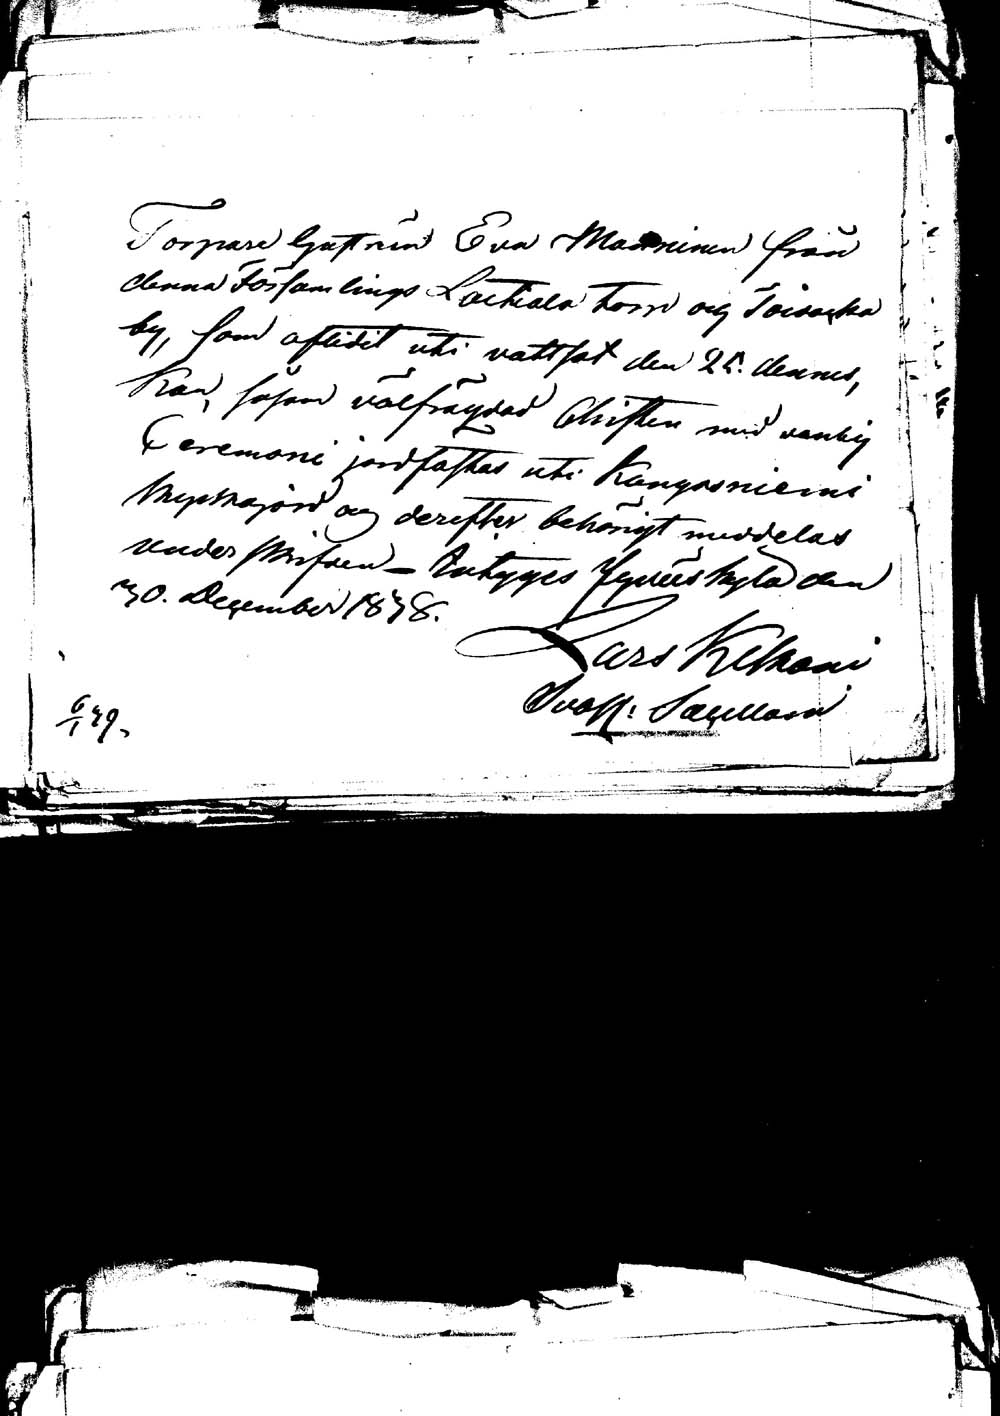 Torpare hustrun Eva Manninen från
denna Församlings Lachiala torp och Toivakka
by, som aflidit uti vattsot den 25. dennes,
Kan, såsom välfrägdad Christen med vanlig
Ceremoni jordfästas uti Kangasniemi
kyrkojord och derefter behörigt meddelas
underskrifven – Intygges Jyväskylä den
30. December 1838.
Lars
6/1 39.